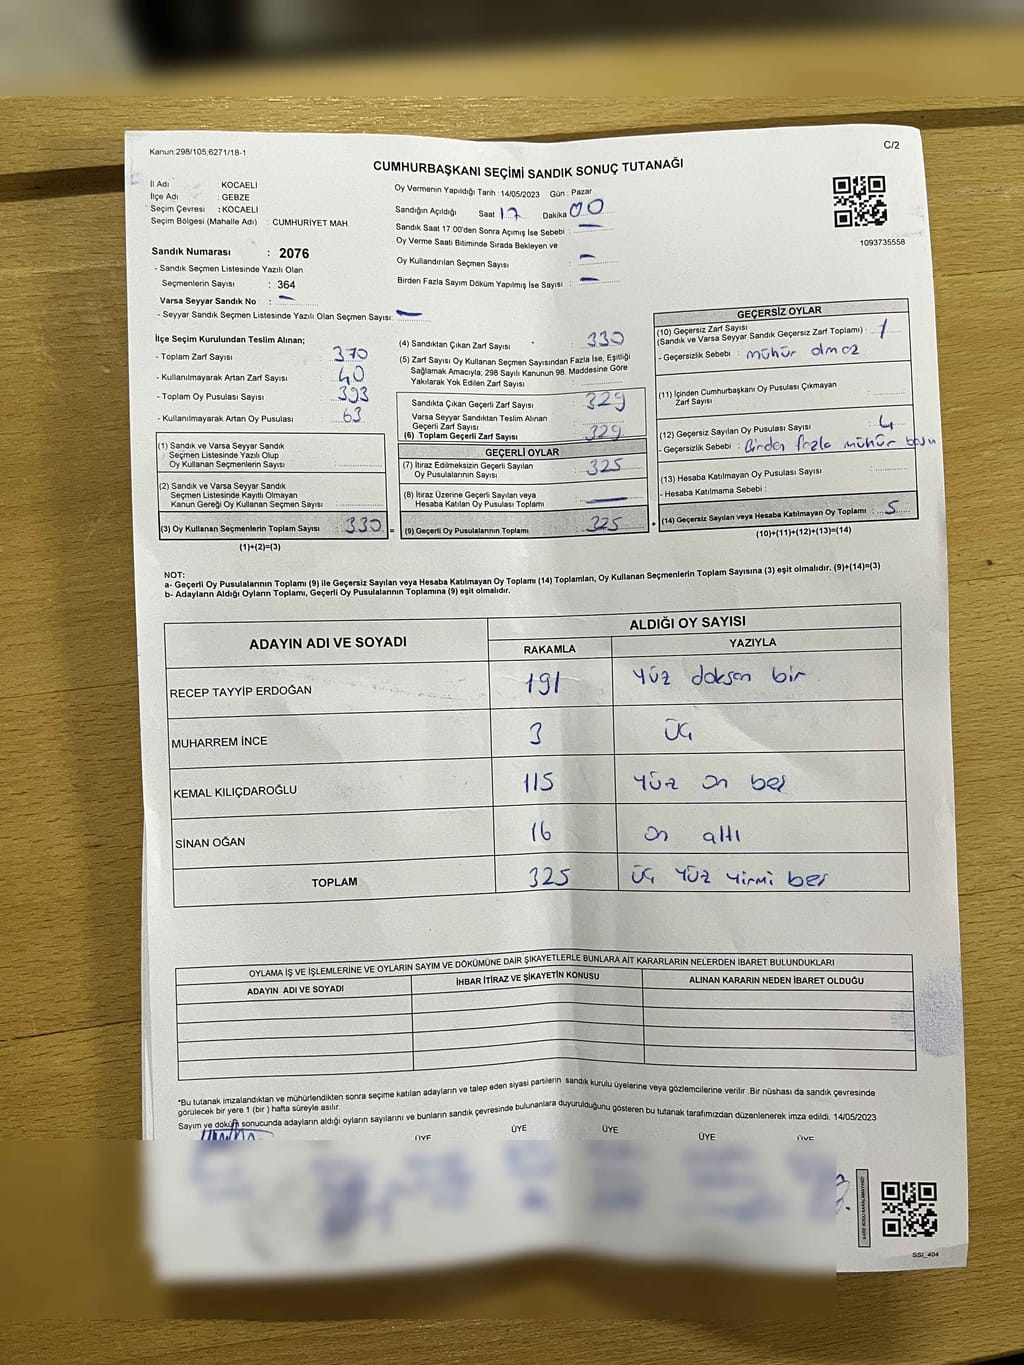 Kanun:298/105;6271/18-1
C/2
CUMHURBAŞKANI SEÇİMİ SANDIK SONUÇ TUTANAĞI
İl Adı : KOCAELİ
İlçe Adı : GEBZE
Seçim Çevresi : KOCAELİ
Seçim Bölgesi (Mahalle Adı) : CUMHURİYET MAH.
Oy Vermenin Yapıldığı Tarih : 14/05/2023 Gün : Pazar
Sandığın Açıldığı Saat 17 Dakika 00
Sandık Saat 17.00'den Sonra Açımış İse Sebebi : —
Oy Verme Saati Bitiminde Sırada Bekleyen ve
Oy Kullandırılan Seçmen Sayısı : —
Birden Fazla Sayım Döküm Yapılmış İse Sayısı : —
1093735558
Sandık Numarası : 2076
- Sandık Seçmen Listesinde Yazılı Olan
Seçmenlerin Sayısı : 364
Varsa Seyyar Sandık No : —
- Seyyar Sandık Seçmen Listesinde Yazılı Olan Seçmen Sayısı: —
İlçe Seçim Kurulundan Teslim Alınan;
- Toplam Zarf Sayısı : 370
- Kullanılmayarak Artan Zarf Sayısı : 40
- Toplam Oy Pusulası Sayısı : 393
- Kullanılmayarak Artan Oy Pusulası : 63
(1) Sandık ve Varsa Seyyar Sandık
Seçmen Listesinde Yazılı Olup
Oy Kullanan Seçmenlerin Sayısı :
(2) Sandık ve Varsa Seyyar Sandık
Seçmen Listesinde Kayıtlı Olmayan
Kanun Gereği Oy Kullanan Seçmen Sayısı :
(3) Oy Kullanan Seçmenlerin Toplam Sayısı : 330 =
(1)+(2)=(3)
(4) Sandıktan Çıkan Zarf Sayısı : 330
(5) Zarf Sayısı Oy Kullanan Seçmen Sayısından Fazla İse, Eşitliği
Sağlamak Amacıyla, 298 Sayılı Kanunun 98. Maddesine Göre
Yakılarak Yok Edilen Zarf Sayısı :
Sandıkta Çıkan Geçerli Zarf Sayısı : 329
Varsa Seyyar Sandıktan Teslim Alınan
Geçerli Zarf Sayısı :
(6) Toplam Geçerli Zarf Sayısı : 329
GEÇERLİ OYLAR
(7) İtiraz Edilmeksizin Geçerli Sayılan
Oy Pusulalarının Sayısı : 325
(8) İtiraz Üzerine Geçerli Sayılan veya
Hesaba Katılan Oy Pusulası Toplamı : —
(9) Geçerli Oy Pusulalarının Toplamı : 325 +
GEÇERSİZ OYLAR
(10) Geçersiz Zarf Sayısı
(Sandık ve Varsa Seyyar Sandık Geçersiz Zarf Toplamı) : 1
- Geçersizlik Sebebi : mühür olmaz
(11) İçinden Cumhurbaşkanı Oy Pusulası Çıkmayan
Zarf Sayısı :
(12) Geçersiz Sayılan Oy Pusulası Sayısı : 4
- Geçersizlik Sebebi : Birden fazla mühür bası
(13) Hesaba Katılmayan Oy Pusulası Sayısı :
- Hesaba Katılmama Sebebi :
(14) Geçersiz Sayılan veya Hesaba Katılmayan Oy Toplamı : 5
(10)+(11)+(12)+(13)=(14)
NOT:
a- Geçerli Oy Pusulalarının Toplamı (9) ile Geçersiz Sayılan veya Hesaba Katılmayan Oy Toplamı (14) Toplamları, Oy Kullanan Seçmenlerin Toplam Sayısına (3) eşit olmalıdır. (9)+(14)=(3)
b- Adayların Aldığı Oyların Toplamı, Geçerli Oy Pusulalarının Toplamına (9) eşit olmalıdır.
ADAYIN ADI VE SOYADI
ALDIĞI OY SAYISI
RAKAMLA YAZIYLA
RECEP TAYYİP ERDOĞAN 191 Yüz doksan bir
MUHARREM İNCE 3 Üç
KEMAL KILIÇDAROĞLU 115 Yüz on beş
SİNAN OĞAN 16 on altı
TOPLAM 325 Üç Yüz Yirmi beş
OYLAMA İŞ VE İŞLEMLERİNE VE OYLARIN SAYIM VE DÖKÜMÜNE DAİR ŞİKAYETLERLE BUNLARA AİT KARARLARIN NELERDEN İBARET BULUNDUKLARI
ADAYIN ADI VE SOYADI İHBAR İTİRAZ VE ŞİKAYETİN KONUSU ALINAN KARARIN NEDEN İBARET OLDUĞU
*Bu tutanak imzalandıktan ve mühürlendikten sonra seçime katılan adayların ve talep eden siyasi partilerin sandık kurulu üyelerine veya gözlemcilerine verilir. Bir nüshası da sandık çevresinde
görülecek bir yere 1 (bir) hafta süreyle asılır.
Sayım ve döküm sonucunda adayların aldığı oyların sayılarını ve bunların sandık çevresinde bulunanlara duyurulduğunu gösteren bu tutanak tarafımızdan düzenlenerek imza edildi. 14/05/2023
ÜYE ÜYE ÜYE ÜYE ÜYE
KARE KODU KARALAMAYINIZ!
SSİ_404